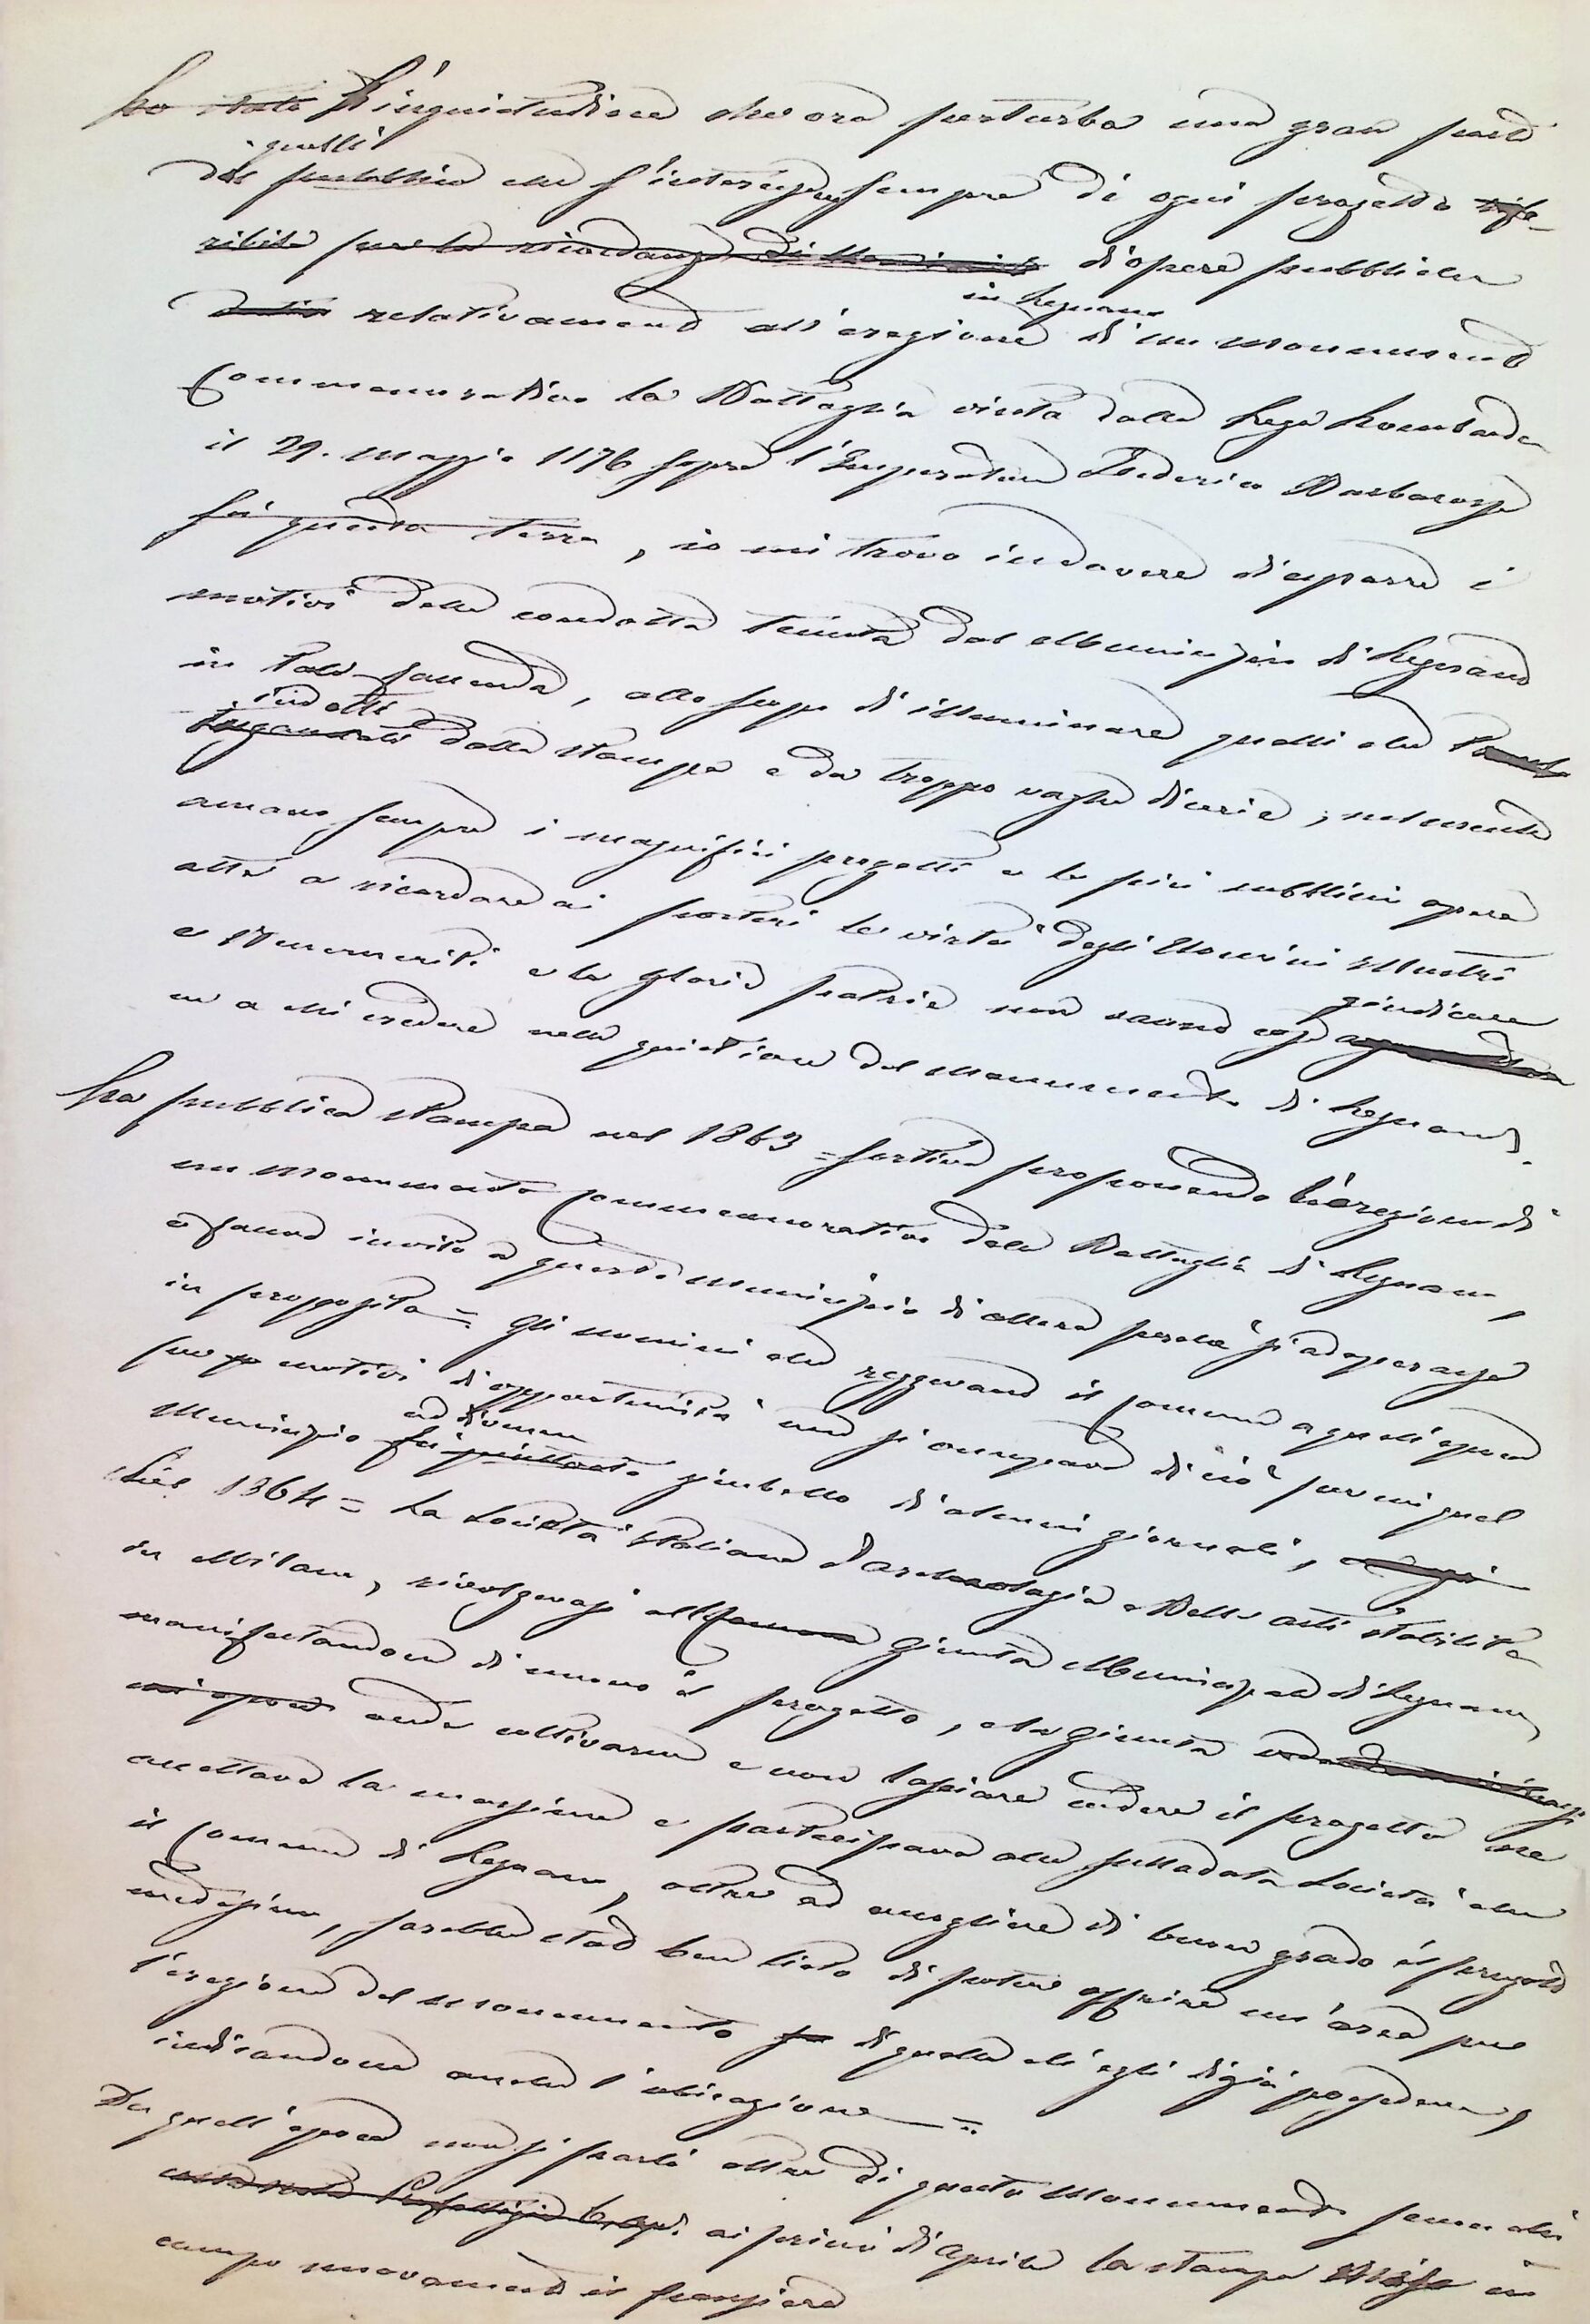 L'inquietudine che ora perturba una gran parte
quelli
del pubblico che s'interessa sempre di ogni progetto rife-
ribile per la ricordanza di d'opere pubbliche
in Legnano
relativamente all'erezione di un monumento
Commemorativo la Battaglia vinta dalla Lega Lombarda
il 29. maggio 1176 sopra l'Imperatore Federico Barbarossa
su questa terra, io mi trovo in dovere di esporre i
motivi della condotta tenuta dal Municipio di Legnano
in tale faccenda, allo scopo di illuminare quelli che
indotti
ingannati dalla stampa e da troppo vaghe dicerie,
amano sempre i magnifici progetti e le più sublimi opere
atte a ricordare ai posteri le virtù degli Uomini illustri
giudicare
e benemeriti e le glorie patrie non sanno
ne a chi credere nella quistione del monumento di Legnano.
La pubblica stampa nel 1863 = sortiva proponendo l'erezione di
un monumento commemorativo della Battaglia di Legnano,
e faceva invito a questo Municipio di allora perché si adoperasse
in proposito =. Gli uomini che reggevano il comune a quell'epoca
per motivi di opportunità non si occuparono di ciò per cui quel
ad divenne
Municipio fu piuttosto zimbello di alcuni giornali,
Nel 1864 = La Società Italiana d'archeologia e Belle arti stabilita
in Milano, rivolgevasi alla Giunta Municipale di Legnano,
manifestandone di nuovo il progetto, e la Giunta
onde coltivarne e non lasciare cadere il progetto ne
accettava la massima e partecipava alla sullodata Società che
il Comune di Legnano, oltre ad accogliere di buon grado il progetto
medesimo, sarebbe stato ben lieto di poter offrire un'area per
l'erezione del monumento di quelle ch'egli di già possedeva,
indicandone anche l'ubicazione =.
Da quell'epoca non si parlò oltre di questo Monumento
ai primi di Aprile la stampa mise in
campo nuovamente il pensiero